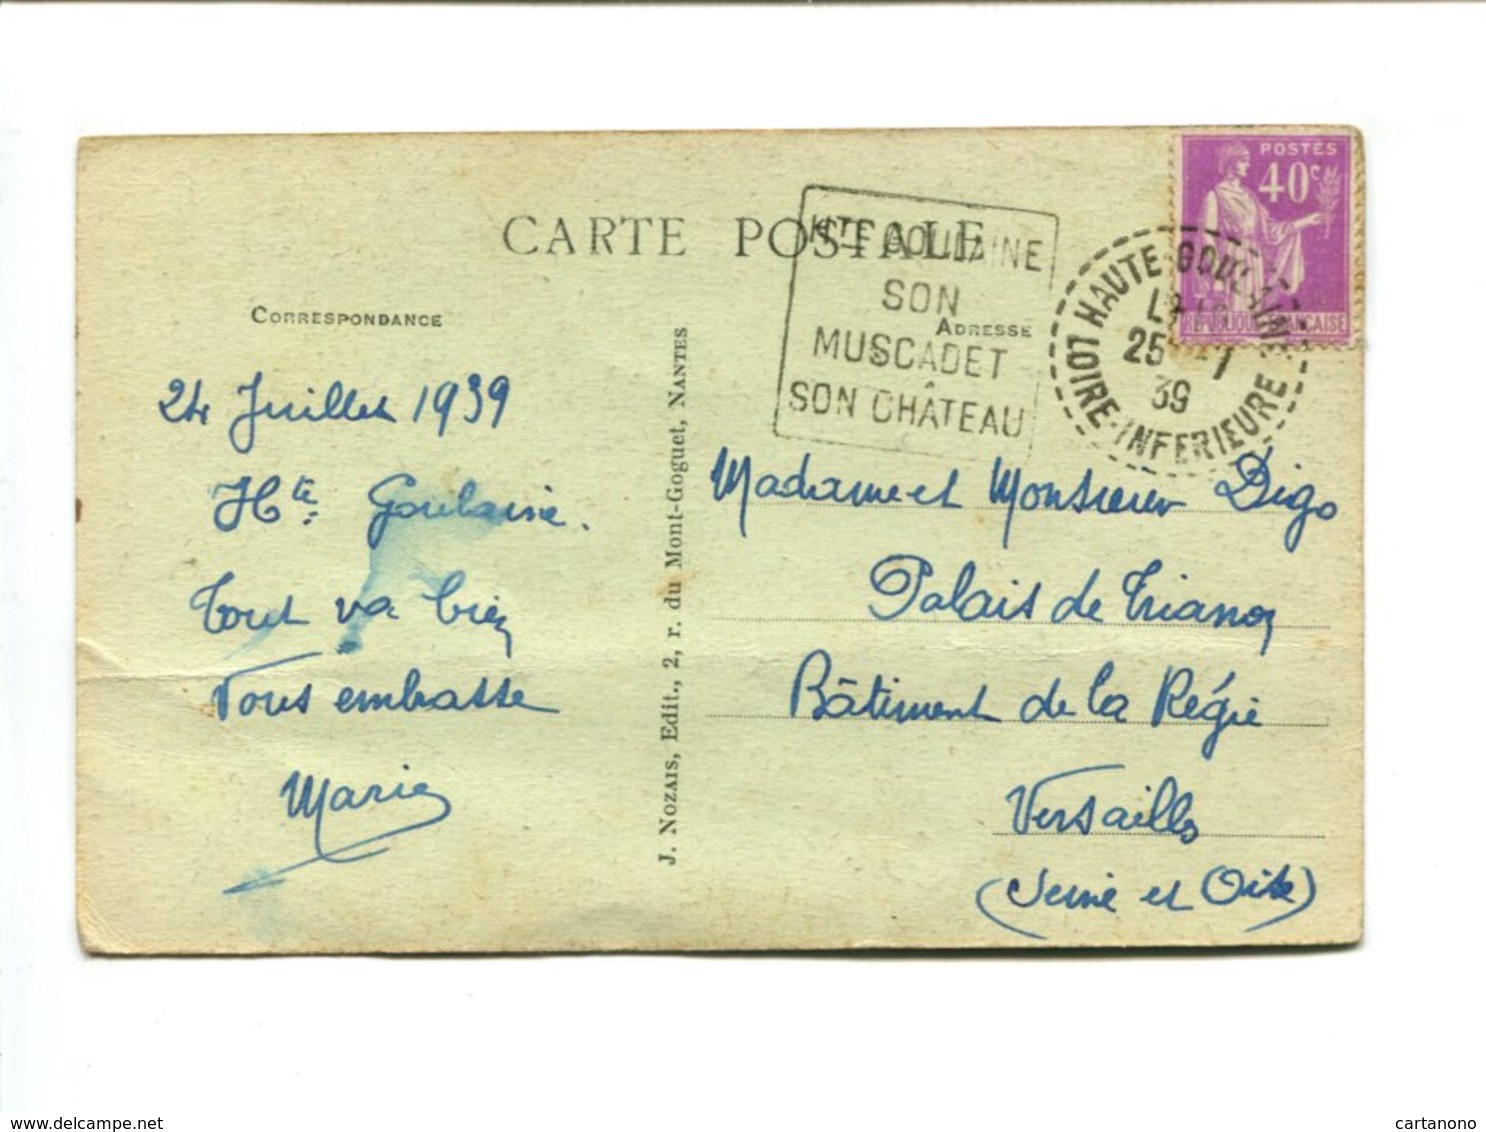 CARTE POSTALE
CORRESPONDANCE
24 Juillet 1939
Hte Goulaine.
Tout va bien
Vous embrasse
Marie
J. NOZAIS, Edit., 2, r. du Mont-Goguet, NANTES
HTE GOULAINE
SON
MUSCADET
SON CHÂTEAU
ADRESSE
POSTES
40c
RÉPUBLIQUE FRANÇAISE
HAUTE-GOULAINE
25 -7
39
LOIRE-INFERIEURE
Madame et Monsieur Digo
Palais de Trianon
Bâtiment de la Régie
Versailles
(Seine et Oise)
delcampe.net
cartanono